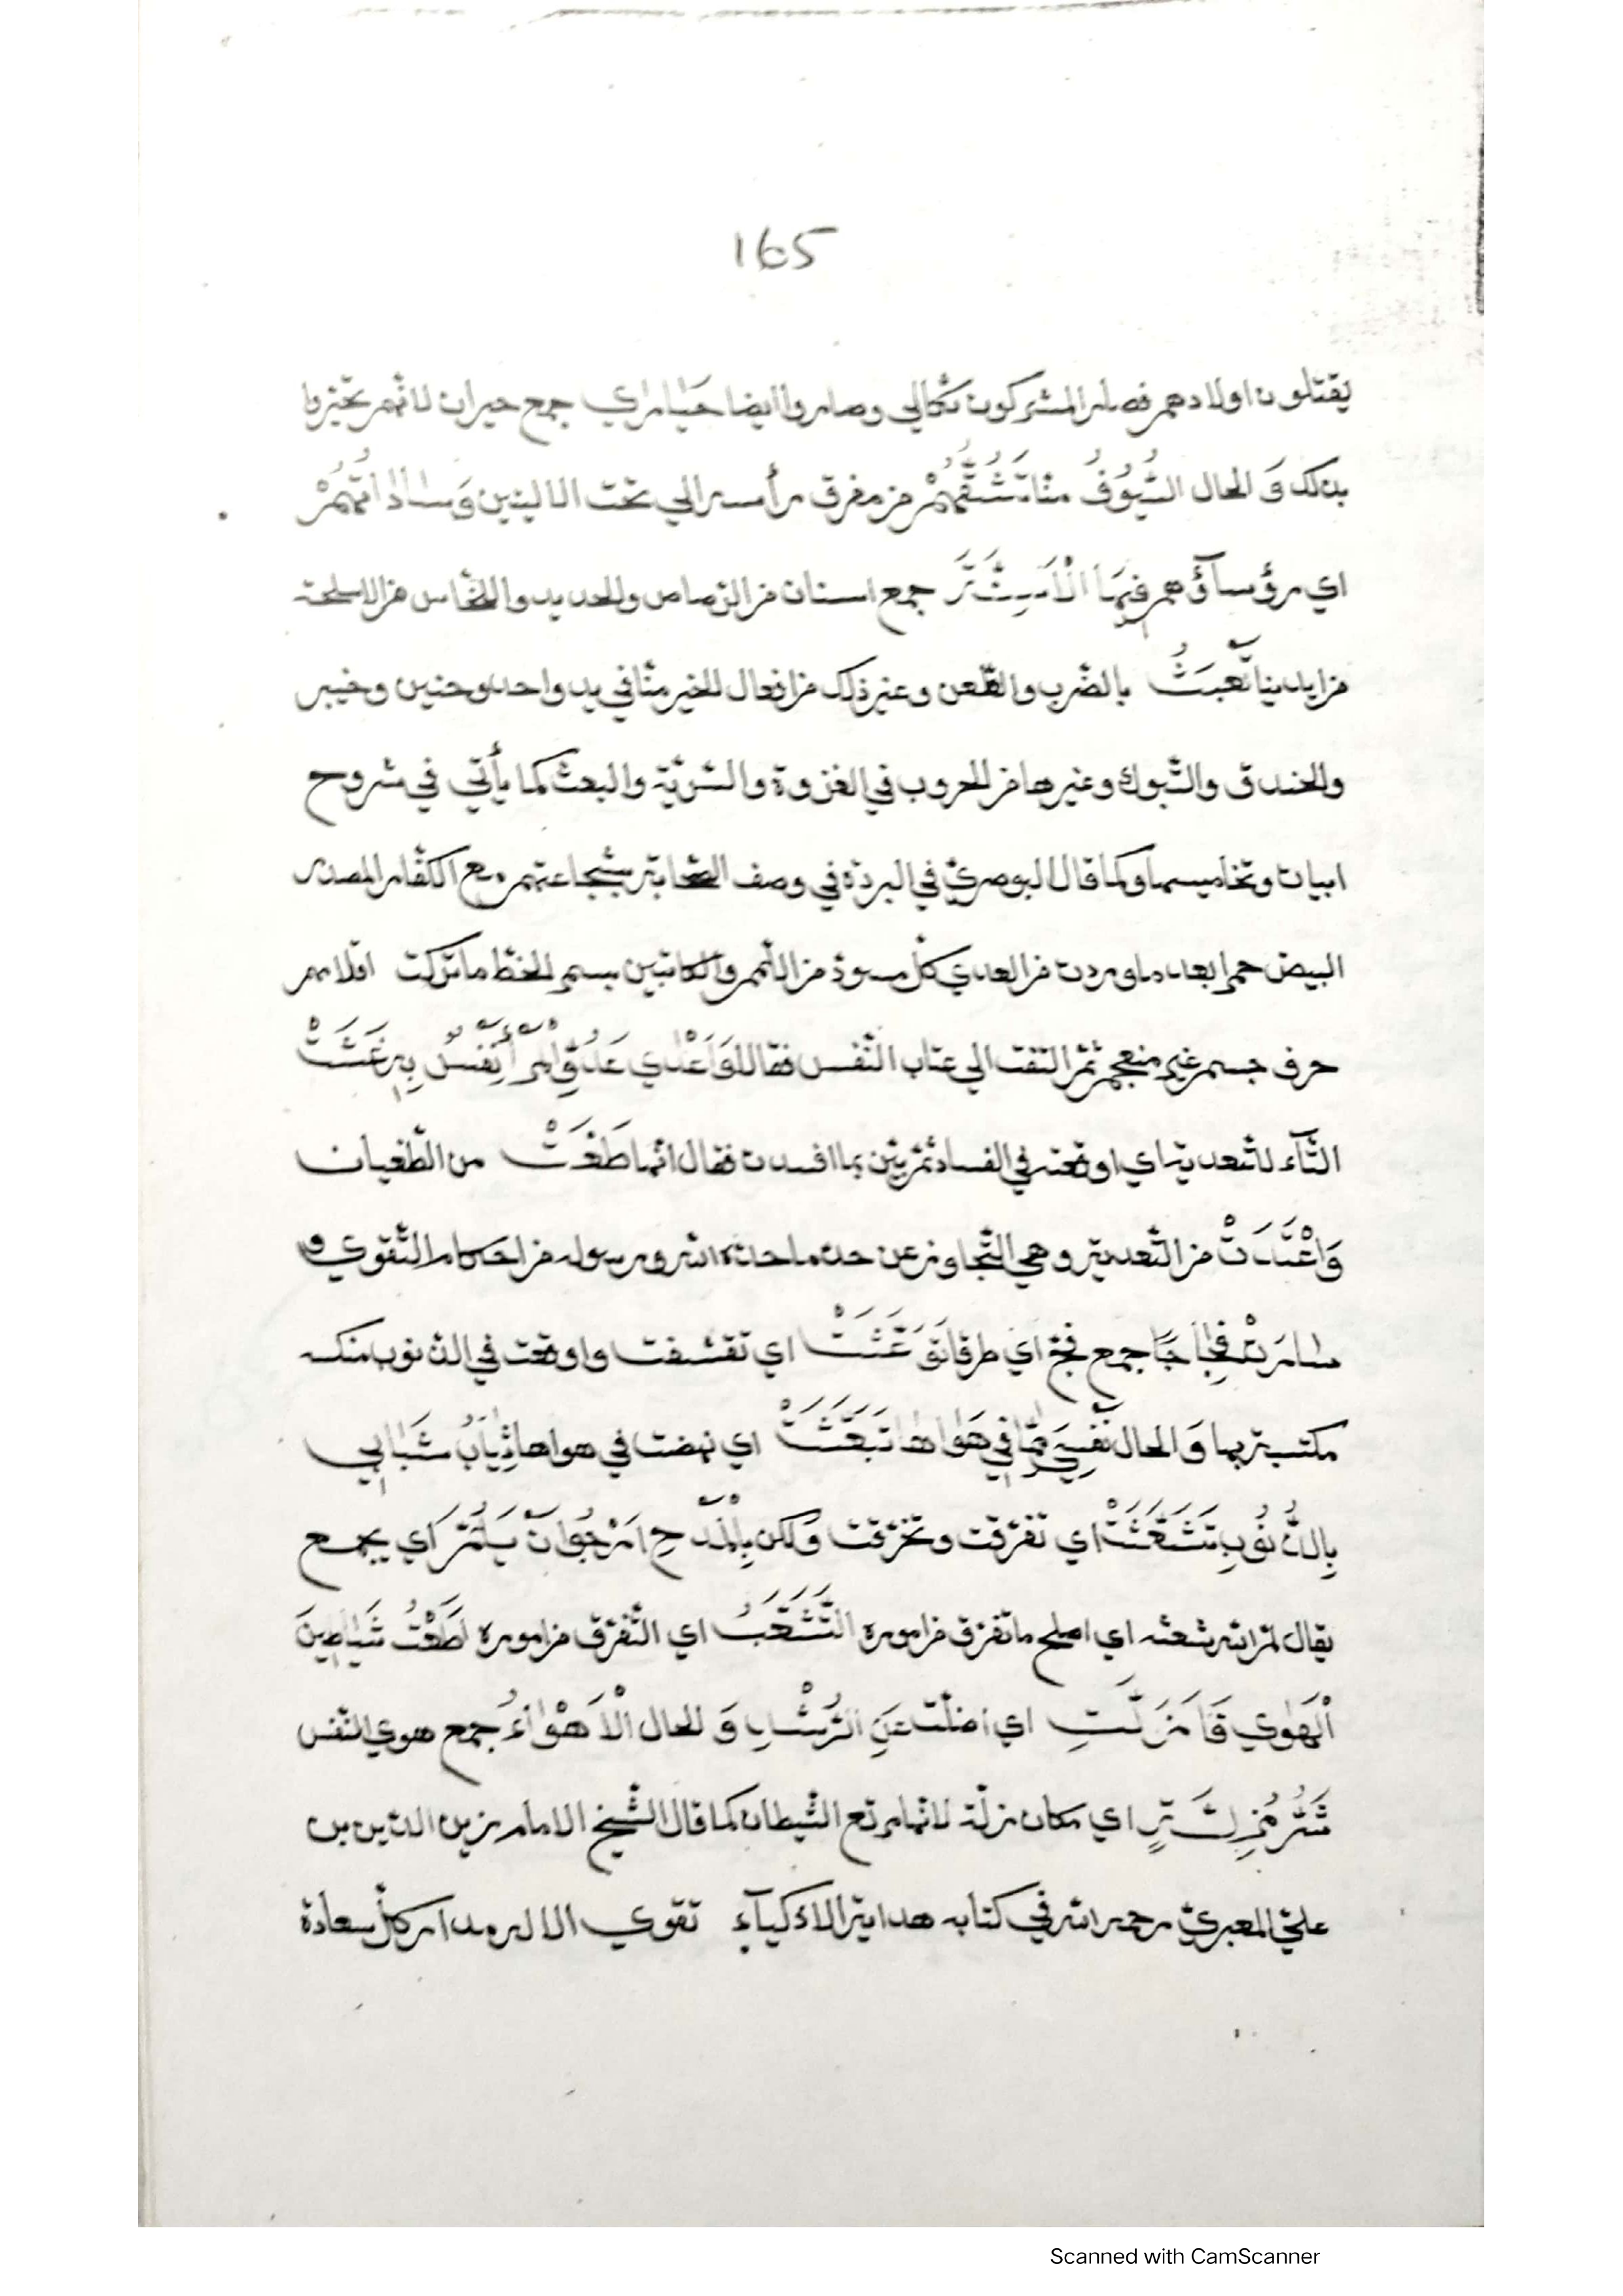 165
يقتلون اولادهم فصار المشركون ثكالي وصاروا ايضا حَيَارٰي جمع حيران لانهم تحيّروا
بذلك وَ الحال السُّيُوْفُ منّا تَشُقُّهُمْ من مفرق رأسه الي تحت الاليتين وَسَادَاتُهُمْ
اي رؤسآؤهم فِيهَا الْاَسِنَّةُ جمع اسنان من الرّصاص والحديد والنّحاس من الاسلحة
من ايدينا تَّعْبَثُ بالضّرب والطّعن وغير ذلك من افعال الخير منّا في بدر واحد وحنين وخيبر
والخندق والتّبوك وغيرها من الحروب في الغزوة والسّريّة والبعث كما يأتي في شروح
ابيات وتخاميسها وكما قال البوصريّ في البردة في وصف الصّحابة بشجاعتهم مع الكفّار المصدر
البيض حمرا بعد ما وردت من العدي كلّ مسودّ من اللّمم والكاتبين بسمر الخطّ ما تركت اقلامهم
حرف جسم غير منعجم ثمّ التفت الي عتاب النّفس فقال وَاَعْدٰي عَدُوِّ الْمَرْءِ نَفْسٌ بِهِ عَثَتْ
التّآء للتّعدية اي اوقعته في الفساد ثمّ بيّن بما افسدت فقال انّها طَغَتْ من الطّغيان
وَاعْتَدَتْ من التّعدية وهي التّجاوز عن حدّ ما حدّه الله ورسوله من احكام التّقوي و
سَارَتْ فِجَاجًا جمع فجّ اي طرقا تَوَعَّثَتْ اي تقشفت واوقعت في الذّنوب منكسة
مكتسبة بها وَ الحال نَفْسِيَ ممّا في هَوَاهَا تَبَعَّثَتْ اي نهضت في هواها ثِيَابُ شَبَابِي
بِالذُّنُوبِ تَشَعَّثَتْ اي تفرّقت وتخرّقت وَلكن بِالْمَدْحِ اَرْجُوا اَنْ يَلُمَّ اي يجمع
يقال لمّ الله شعثه اي اصلح ما تفرّق من اموره التَّشَعُّبُ اي التّفرّق من اموره اَطَعْتُ شَيَاطِينَ
الْهَوٰي قَا مَزَلَّتِ اي اضلّت عَنِ الرُّشْدِ وَ الحال الْاَهْوَاءُ جمع هوي النّفس
شَرُّ مَزِلَّةٍ اي مكان زلّة لانّها مرتع الشّيطان كما قال الشّيخ الامام زين الدّين بن
عليّ المعبريّ رحمه الله في كتابه هداية الاذكيآءِ تقوي الاله مدار كلّ سعادة
Scanned with CamScanner